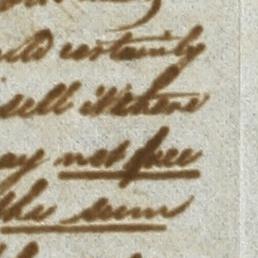 uld certainly
sell it there
ay not free
the sum